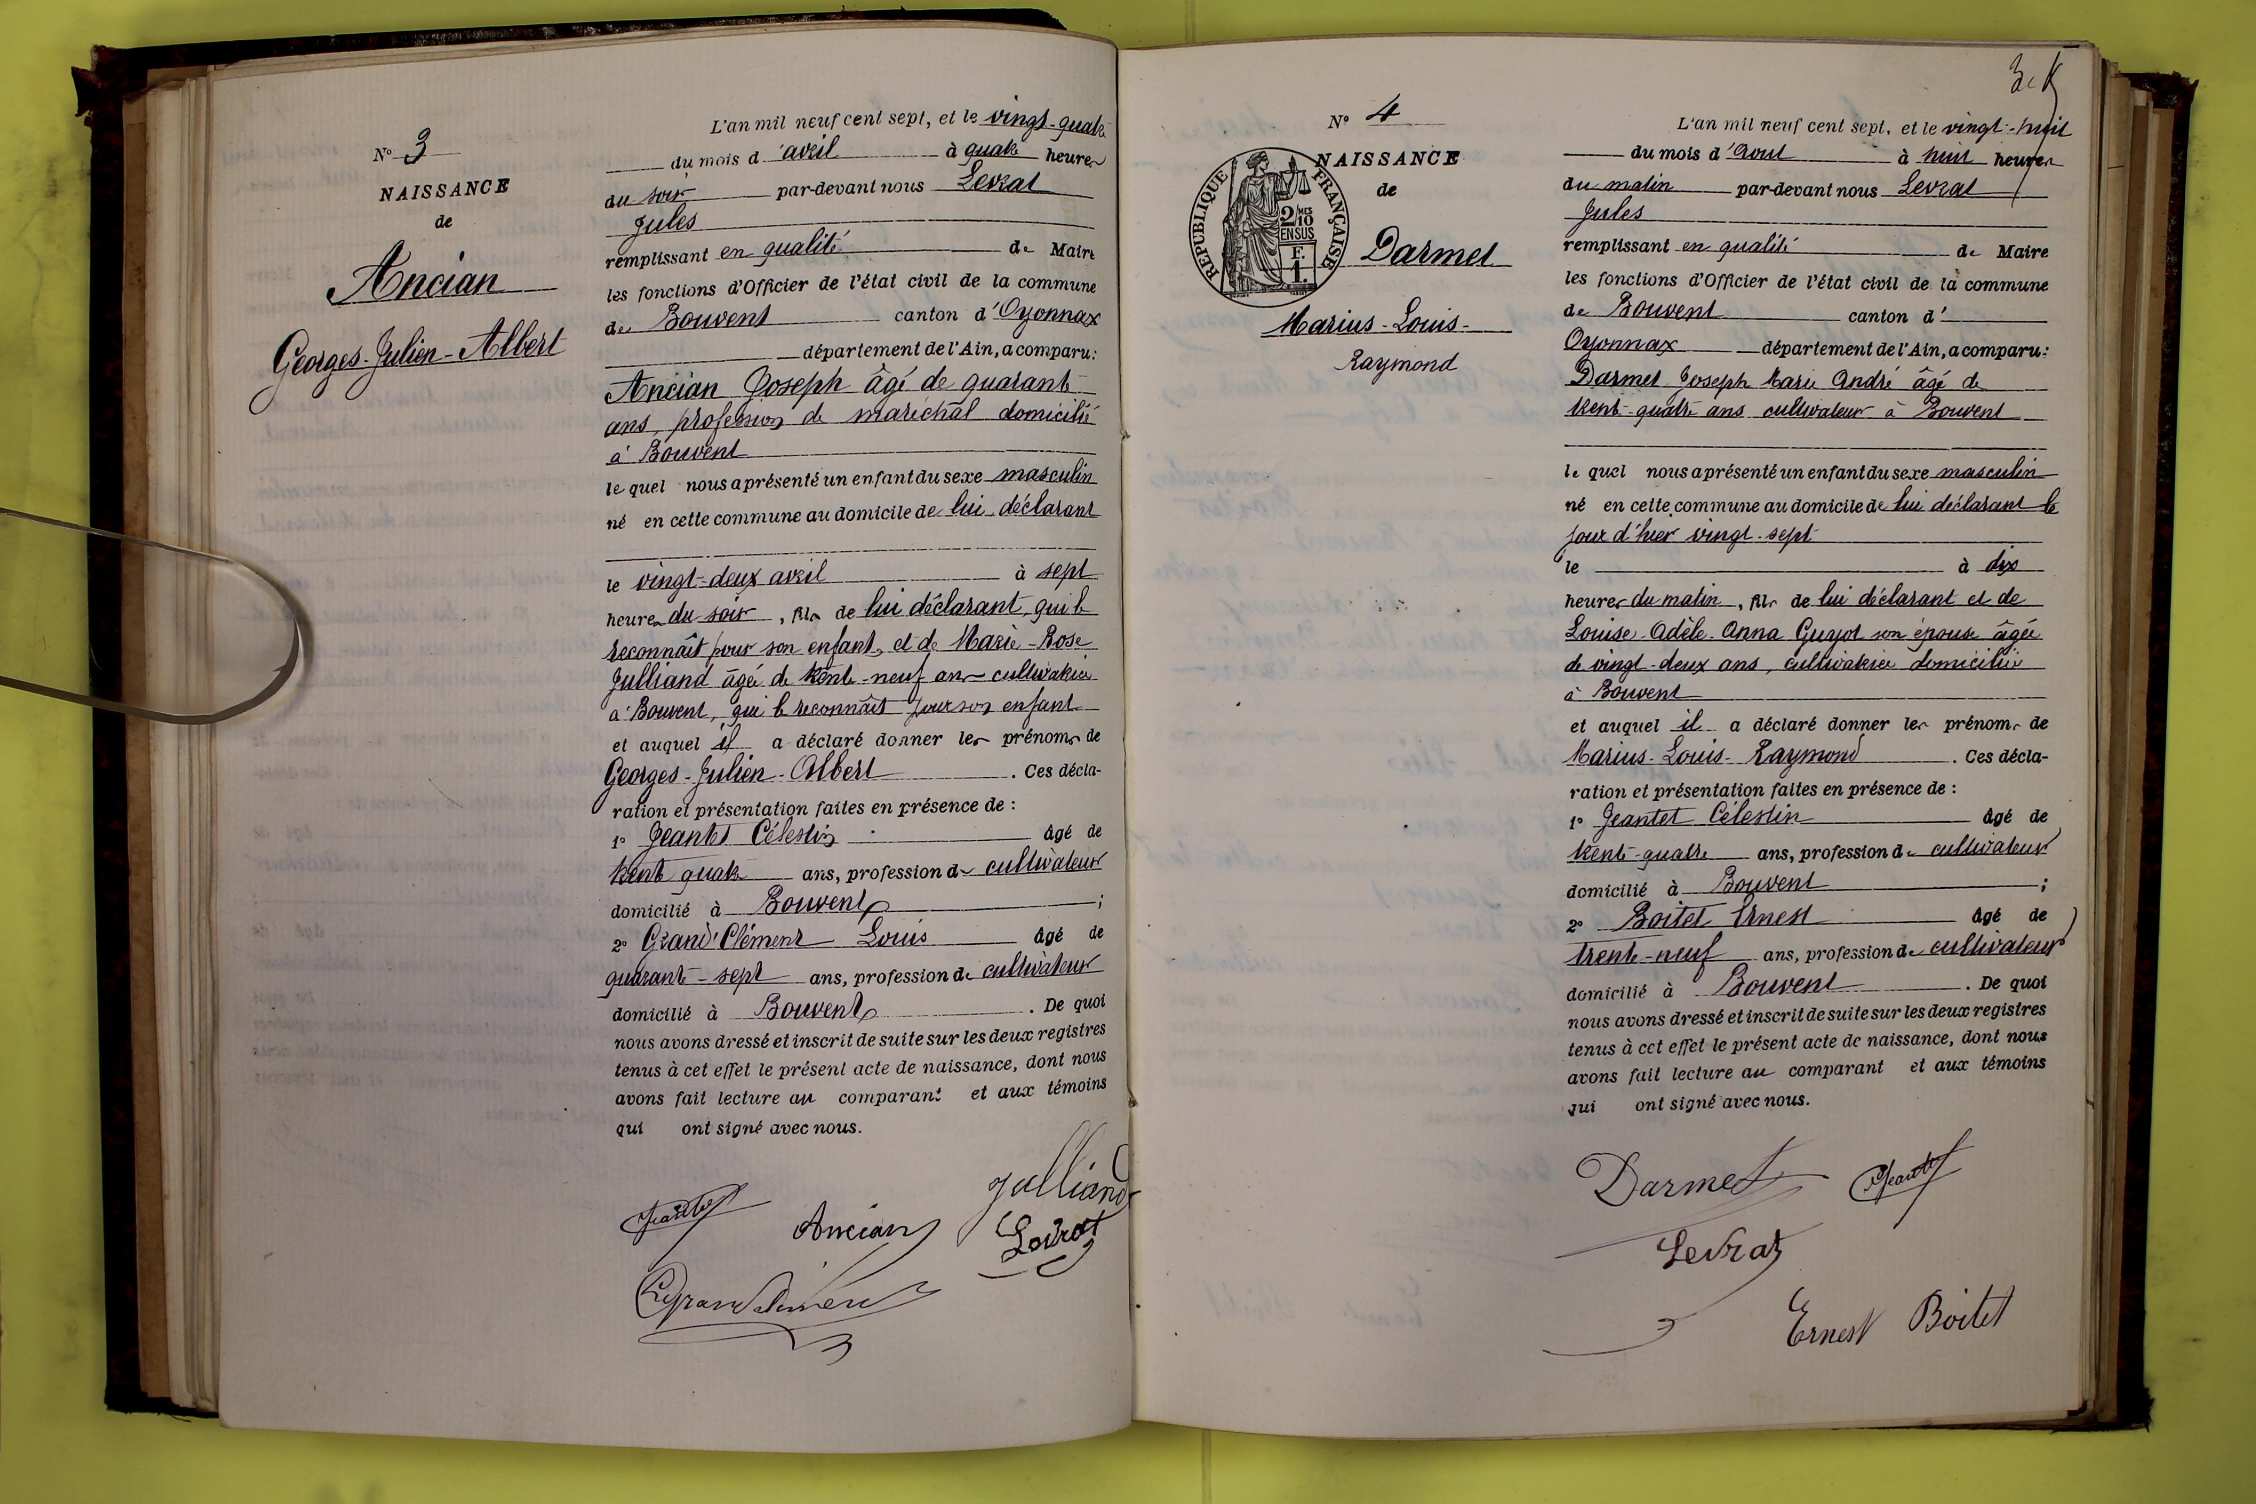 N° 3
NAISSANCE
de
Ancian
Georges-Julien-Albert
L'an mil neuf cent sept, et le vingt-quatre
du mois d'avril à quatre heures
du soir par-devant nous Levrat
Jules
remplissant en qualité de Maire
les fonctions d'Officier de l'état civil de la commune
de Bouvent canton d'Oyonnax
département de l'Ain, a comparu:
Ancian Joseph âgé de quarante
ans, profession de maréchal domicilié
à Bouvent
le quel nous a présenté un enfant du sexe masculin
né en cette commune au domicile de lui déclarant
le vingt-deux avril à sept
heures du soir, fils de lui déclarant, qui le
reconnaît pour son enfant, et de Marie-Rose
Julliand âgée de trente-neuf ans cultivatrice
à Bouvent, qui le reconnaît pour son enfant
et auquel il a déclaré donner les prénoms de
Georges-Julien-Albert. Ces décla-
ration et présentation faites en présence de :
1° Jeantet Célestin âgé de
trente quatre ans, profession de cultivateur
domicilié à Bouvent ;
2° Grand'Clément Louis âgé de
quarante-sept ans, profession de cultivateur
domicilié à Bouvent. De quoi
nous avons dressé et inscrit de suite sur les deux registres
tenus à cet effet le présent acte de naissance, dont nous
avons fait lecture au comparant et aux témoins
qui ont signé avec nous.
Julliand
Jeantet Ancian Levrat
Grandclément
N° 4
NAISSANCE
de
RÉPUBLIQUE FRANÇAISE
2/10 MES
EN SUS
F.
1.
Darmet
Marius-Louis-
Raymond
L'an mil neuf cent sept, et le vingt-huit
du mois d'Aout à huit heures
du matin par-devant nous Levrat
Jules
remplissant en qualité de Maire
les fonctions d'Officier de l'état civil de la commune
de Bouvent canton d'
Oyonnax département de l'Ain, a comparu:
Darmet Joseph Marie André âgé de
trente-quatre ans cultivateur à Bouvent
le quel nous a présenté un enfant du sexe masculin
né en cette commune au domicile de lui déclarant le
jour d'hier vingt-sept
le à dix
heures du matin, fils de lui déclarant et de
Louise-Adèle-Anna Guyot son épouse âgée
de vingt-deux ans, cultivatrice domiciliée
à Bouvent
et auquel il a déclaré donner les prénoms de
Marius-Louis-Raymond. Ces décla-
ration et présentation faites en présence de :
1° Jeantet Célestin âgé de
trente-quatre ans, profession de cultivateur
domicilié à Bouvent ;
2° Boitet Ernest âgé de
trente-neuf ans, profession de cultivateur
domicilié à Bouvent. De quoi
nous avons dressé et inscrit de suite sur les deux registres
tenus à cet effet le présent acte de naissance, dont nous
avons fait lecture au comparant et aux témoins
qui ont signé avec nous.
Darmet Jeantet
Levrat
Ernest Boitet